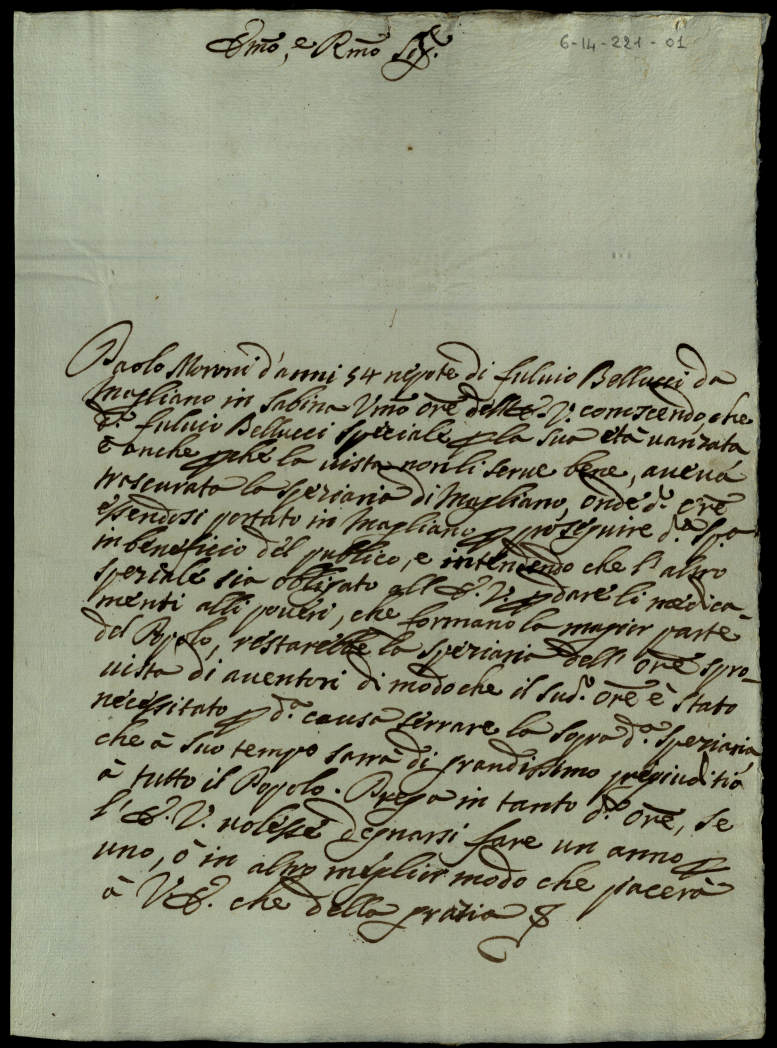 Emo, e Rmo Sig.e
6-14-221-01
Paolo Moroni d'anni 54 nepote di fuluio Bellucci da
Magliano in Sabina Vmo Ore dell'E. V. conoscendo che
d.o fuluio Bellucci speziale p la sua età vanzata
e anche pche la uista non li serue bene, aueuà
trascurato la speziaria di Magliano, onde d.o Ore
essendosi portato in Magliano p proseguire d.a Sp.a
in beneficio del publico, e intendendo che l'altro
speziale sia obligato all'E. V. p dare li medica-
menti alli poueri, che formano la magior parte
del Popolo, restarebbe la speziaria dell' Ore spro-
uista di auentori di modo che il sud.o Ore è stato
necessitato p d.a causa serrare la sopra d.a speziaria
che à suo tempo sarrà di grandissimo pregiuditio
à tutto il Popolo. Prega in tanto d.o Ore, se
l'E. V. uolesse degnarsi fare un anno p
uno, ò in altro meglior modo che piacerà
à V. E. che della grazia &